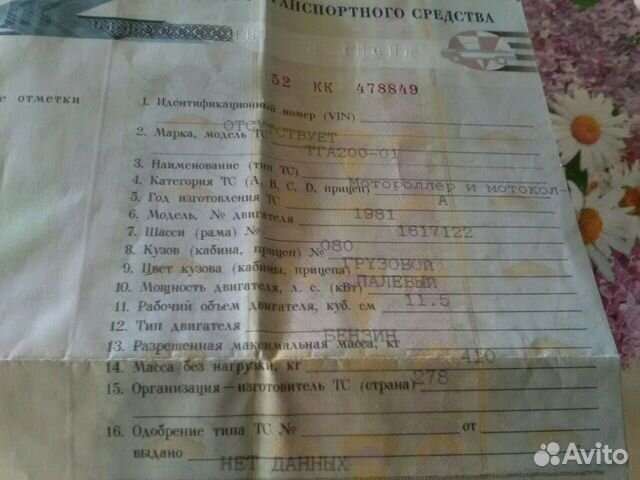 ТРАНСПОРТНОГО СРЕДСТВА
52 КК 478849
е отметки
1. Идентификационный номер (VIN)
ОТСУТСТВУЕТ
2. Марка, модель ТС
ТГА200-01
3. Наименование (тип ТС)
Мотороллер и мотокол-
4. Категория ТС (А, В, С, D, прицеп)
А
5. Год изготовления ТС
1981
6. Модель, № двигателя
1617122
7. Шасси (рама) №
080
8. Кузов (кабина, прицеп) №
ГРУЗОВОЙ
9. Цвет кузова (кабины, прицепа)
ПАЛЕВЫЙ
10. Мощность двигателя, л. с. (кВт)
11.5
11. Рабочий объем двигателя, куб. см
12. Тип двигателя
БЕНЗИН
13. Разрешенная максимальная масса, кг
410
14. Масса без нагрузки, кг
278
15. Организация — изготовитель ТС (страна)
16. Одобрение типа ТС № от
выдано
НЕТ ДАННЫХ
Avito